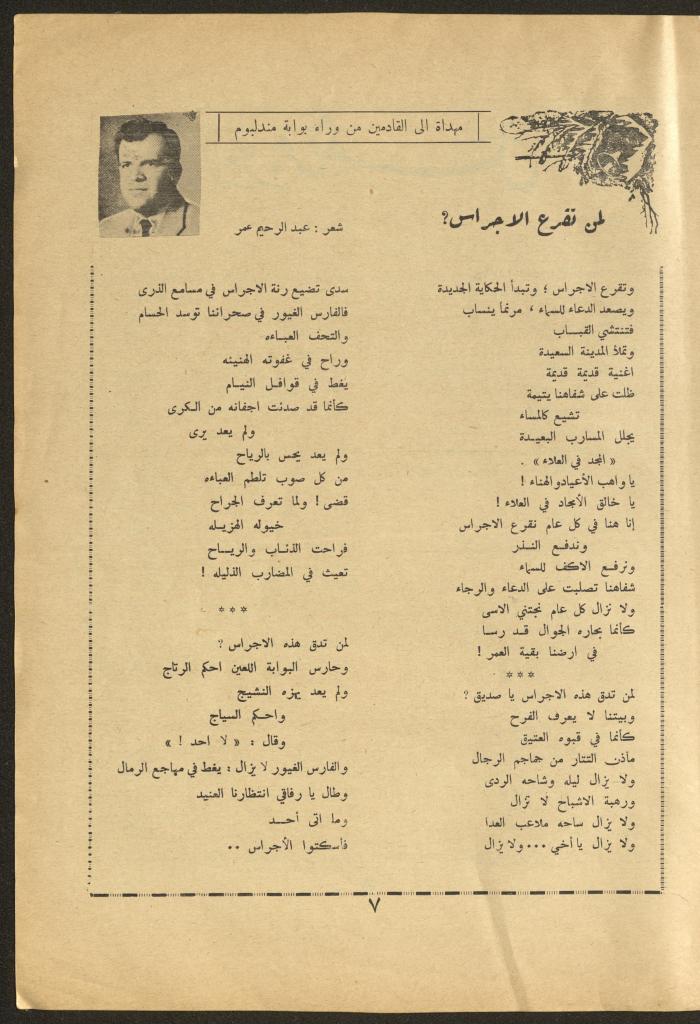 مهداة الى القادمين من وراء بوابة مندلبوم
لمن تقرع الاجراس؟
شعر : عبد الرحيم عمر
وتقرع الاجراس ؛ وتبدأ الحكاية الجديدة
ويصعد الدعاء للسماء ، مرنماً ينساب
فتنتشي القبـــاب
وتملأ المدينة السعيدة
اغنية قديمة قديمة
ظلت على شفاهنا يتيمة
تشيع كالمساء
يجلل المسارب البعيـدة
« المجد في العلاء » .
يا واهب الأعياد والهناء !
يا خالق الأمجاد في العلاء !
إنا هنا في كل عام نقرع الاجراس
وندفـع النـذر
ونرفـع الاكف للسماء
شفاهنا تصلبت على الدعاء والرجاء
ولا نزال كل عام نجتني الاسى
كأنما بحاره الجوال قـد رسـا
في ارضنا بقية العمر !
* * *
لمن تدق هذه الاجراس يا صديق ؟
وبيتنا لا يعرف الفرح
كأنما في قبوه العتيق
مآذن التتار من جماجم الرجال
ولا يزال ليله وشاحه الردى
ورهبة الاشباح لا تزال
ولا يزال ساحه ملاعب العدا
ولا يزال يا أخي ... ولا يزال
سدى تضيع رنة الاجراس في مسامع الذرى
فالفارس الغيور في صحرائنا توسد الحسام
والتحف العبــاءه
وراح في غفوته الهنيئه
يغط في قوافـل النيـام
كأنما قد صدئت اجفانه من الـكرى
ولم يعد يرى
ولم يعد يحس بالرياح
من كل صوب تلطم العباءه
قضى ! ولما تعرف الجراح
خيوله الهزيـله
فراحت الذئـاب والريـاح
تعيث في المضارب الذليله !
* * *
لمن تدق هذه الاجراس ؟
وحارس البوابة اللعين احكم الرتاج
ولم يعد يهزه النشيج
واحـكم السياج
وقال : « لا احد ! »
والفارس الغيور لا يزال : يغط في مهاجع الرمال
وطال يا رفاقي انتظارنا العنيد
وما اتى أحـــد
فأسكتوا الأجراس ..
٧